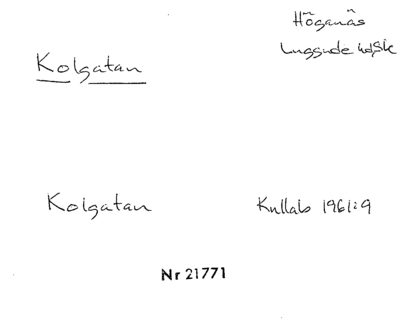 Höganäs
Luggude hd Sk
Kolgatan
Kolgatan Kullab 1961:9
Nr 21771